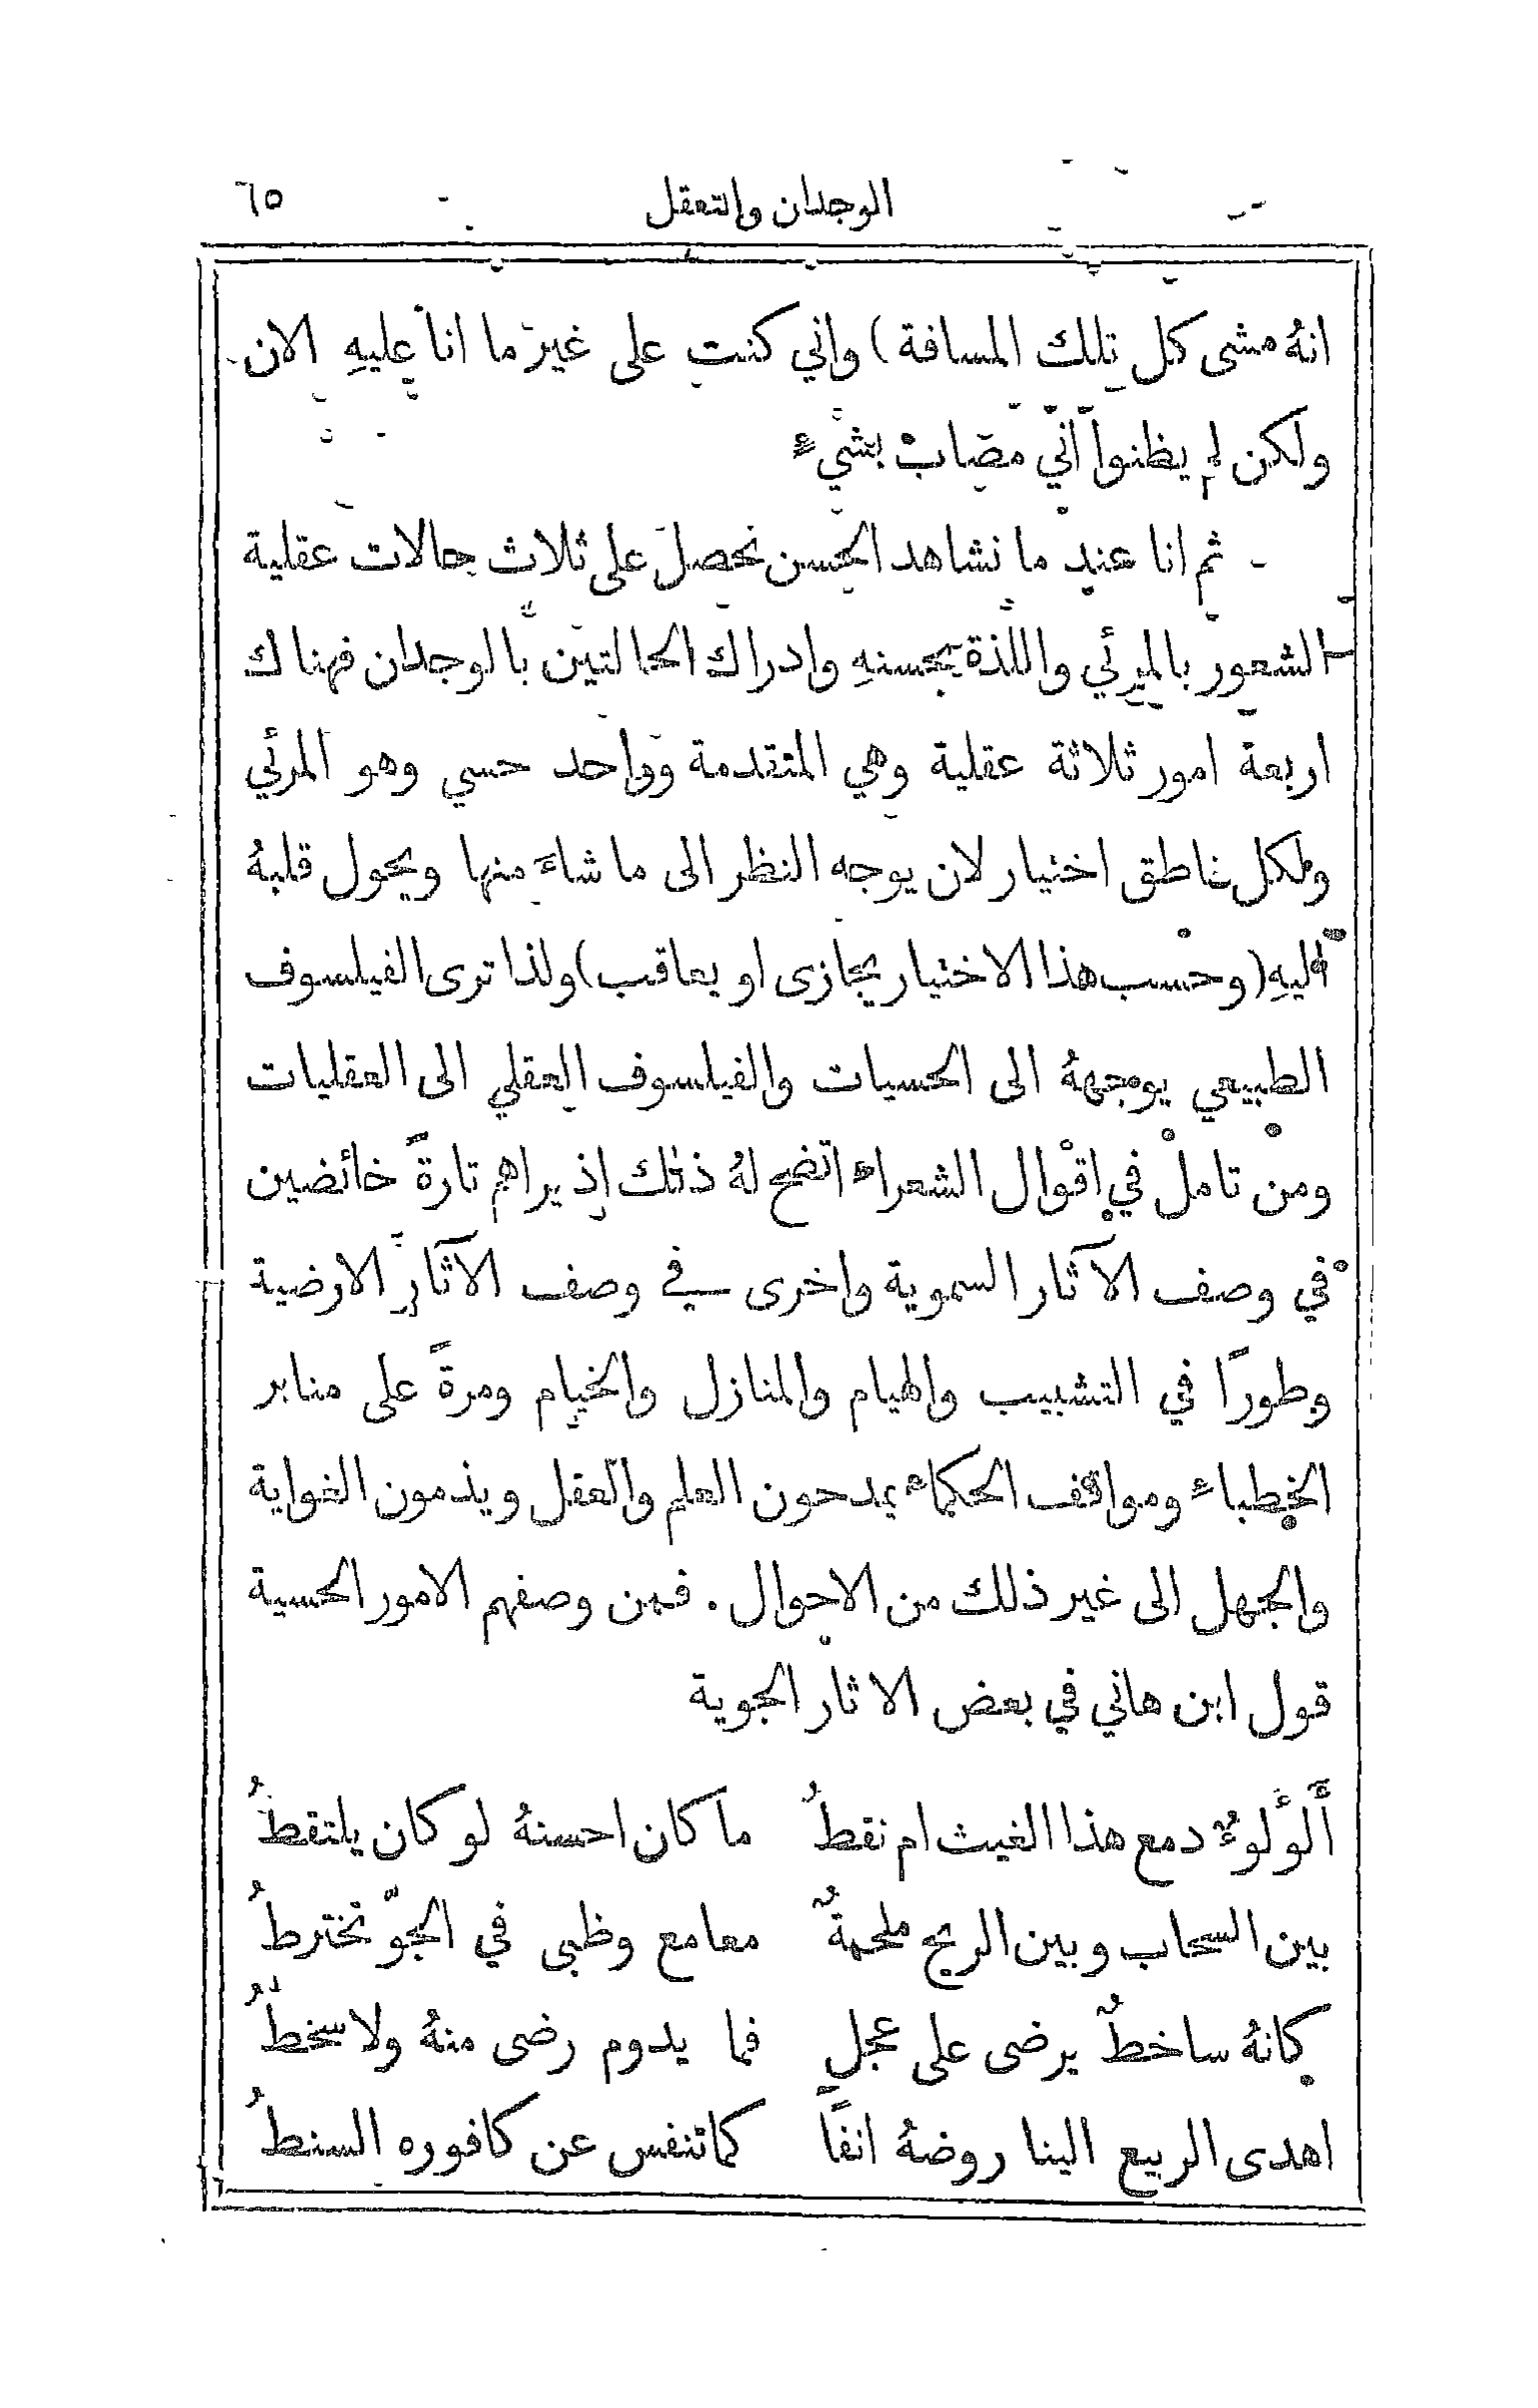 الوجدان والتعقل ٦٥
انهُ مشى كل تلك المسافة) واني كنت على غير ما انا عليهِ الان
ولكن لم يظنوا اني مصاب بشيءٍ
ثم انا عند ما نشاهد الحسن نحصل على ثلاث حالات عقلية
الشعور بالمرئي واللذة بحسنهِ وادراك الحالتين بالوجدان فهناك
اربعة امور ثلاثة عقلية وهي المتقدمة وواحد حسي وهو المرئي
ولكل ناطق اختيار لان يوجه النظر الى ما شاءَ منها ويحول قلبهُ
اليهِ (وحسب هذا الاختيار يجازى او يعاقب) ولذا ترى الفيلسوف
الطبيعي يوجههُ الى الحسيات والفيلسوف العقلي الى العقليات
ومن تامل في اقوال الشعراء اتضح لهُ ذلك اذ يراهم تارةً خائضين
في وصف الآثار السموية واخرى في وصف الآثار الارضية
وطورًا في التشبيب والهيام والمنازل والخيام ومرةً على منابر
الخطباء ومواقف الحكماء يمدحون العلم والعقل ويذمون الغواية
والجهل الى غير ذلك من الاحوال. فمن وصفهم الامور الحسية
قول ابن هاني في بعض الاثار الجوية
أَلُؤْلُوءٌ دمع هذا الغيث ام نقطُ ما كان احسنهُ لو كان يلتقطُ
بين السحاب وبين الريح ملحمةٌ معامع وظبى في الجوّ تخترطُ
كانهُ ساخطٌ يرضى على عجلٍ فما يدوم رضى منهُ ولا سخطُ
اهدى الربيع الينا روضهُ انفًا كما تنفس عن كافوره السنطُ